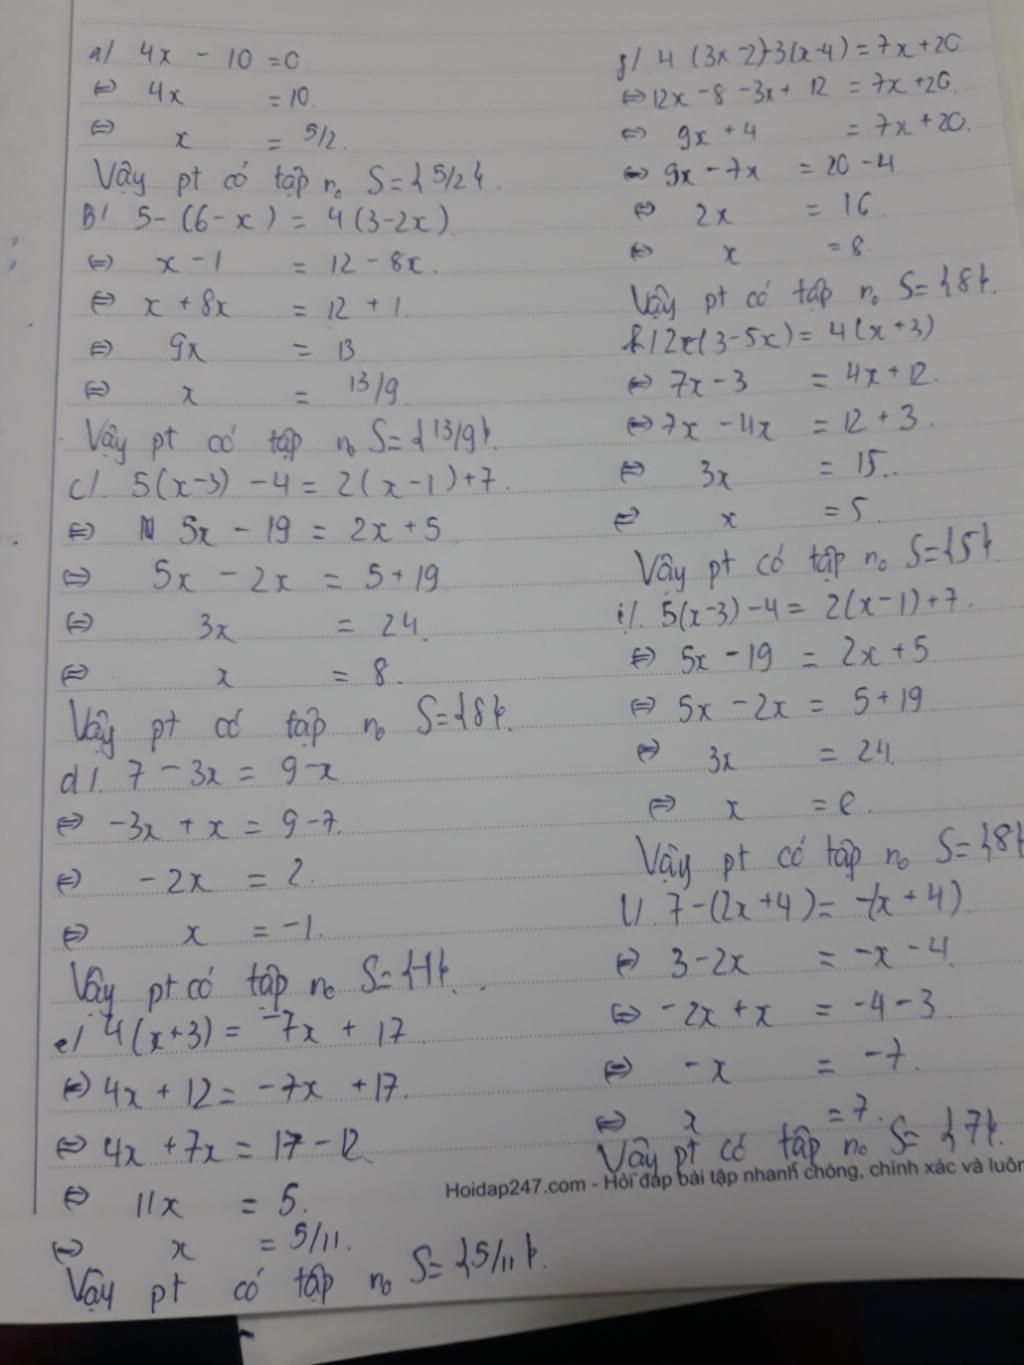 a/ 4x - 10 = 0
⇔ 4x = 10
⇔ x = 5/2.
Vậy pt có tập no S={5/2}.
B/ 5-(6-x) = 4(3-2x)
⇔ x - 1 = 12 - 8x.
⇔ x + 8x = 12 + 1.
⇔ 9x = 13
⇔ x = 13/9
Vậy pt có tập no S={13/9}.
c/. 5(x-3) - 4 = 2(x-1)+7.
⇔ 5x - 19 = 2x + 5
⇔ 5x - 2x = 5 + 19
⇔ 3x = 24.
⇔ x = 8.
Vậy pt có tập no S={8}.
d/. 7 - 3x = 9-x
⇔ -3x + x = 9-7.
⇔ -2x = 2.
⇔ x = -1.
Vậy pt có tập no S={-1}.
e/ 4(x+3) = -7x + 17
⇔ 4x + 12 = -7x + 17.
⇔ 4x + 7x = 17 - 12
⇔ 11x = 5.
⇔ x = 5/11.
Vậy pt có tập no S={5/11}.
g/ 4(3x-2)-3(x-4) = 7x+20
⇔ 12x - 8 - 3x + 12 = 7x+20.
⇔ 9x + 4 = 7x + 20.
⇔ 9x - 7x = 20 - 4
⇔ 2x = 16
⇔ x = 8.
Vậy pt có tập no S={8}.
h/ 2x-(3-5x) = 4(x+3)
⇔ 7x - 3 = 4x + 12.
⇔ 7x - 4x = 12 + 3.
⇔ 3x = 15.
⇔ x = 5.
Vậy pt có tập no S={5}
i/. 5(x-3)-4 = 2(x-1)+7.
⇔ 5x - 19 = 2x + 5
⇔ 5x - 2x = 5 + 19
⇔ 3x = 24.
⇔ x = 8.
Vậy pt có tập no S={8}
l/ 7-(2x+4) = -(x+4)
⇔ 3 - 2x = -x - 4.
⇔ -2x + x = -4 - 3.
⇔ -x = -7.
⇔ x = 7.
Vậy pt có tập no S={7}.
Hoidap247.com - Hỏi đáp bài tập nhanh chóng, chính xác và luôn